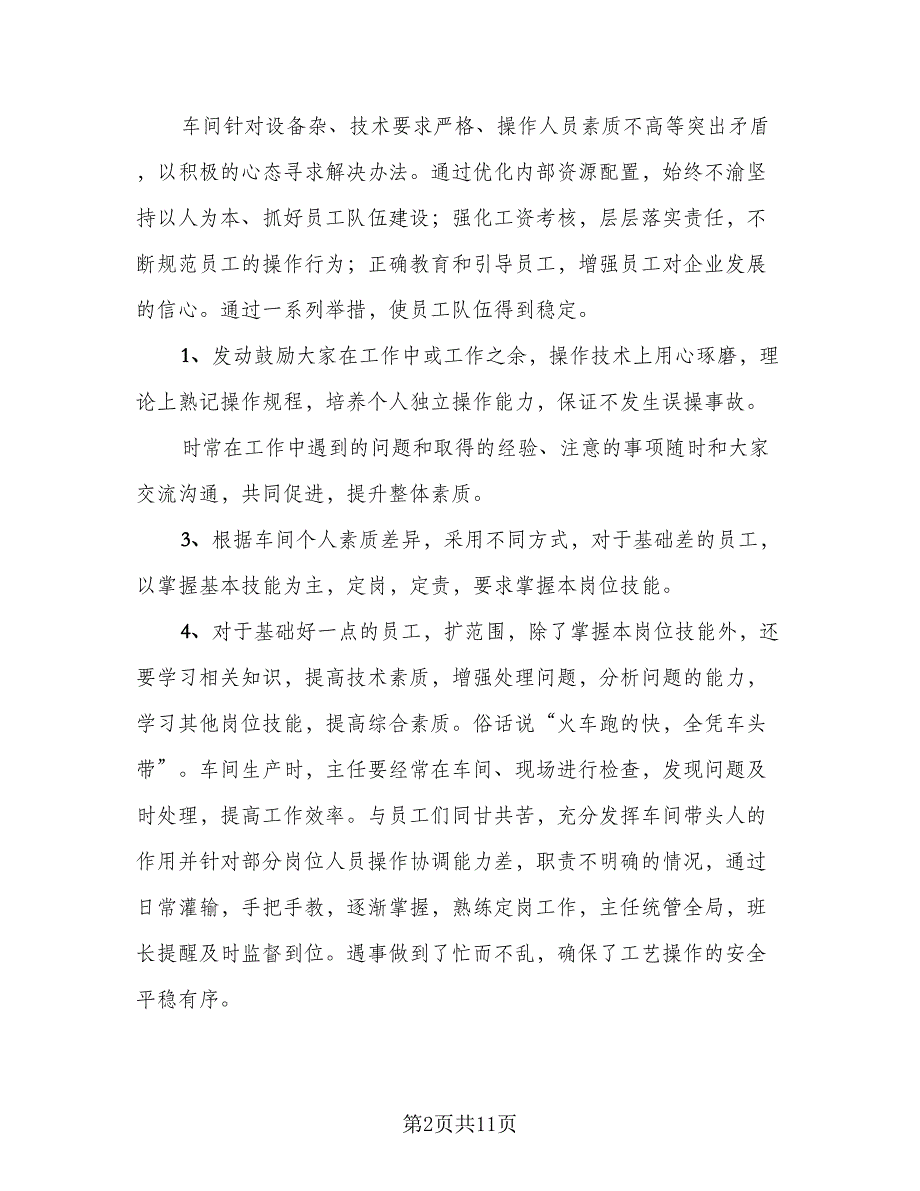 车间针对设备杂、技术要求严格、操作人员素质不高等突出矛盾
，以积极的心态寻求解决办法。通过优化内部资源配置，始终不渝坚
持以人为本、抓好员工队伍建设；强化工资考核，层层落实责任，不
断规范员工的操作行为；正确教育和引导员工，增强员工对企业发展
的信心。通过一系列举措，使员工队伍得到稳定。
1、发动鼓励大家在工作中或工作之余，操作技术上用心琢磨，理
论上熟记操作规程，培养个人独立操作能力，保证不发生误操事故。
时常在工作中遇到的问题和取得的经验、注意的事项随时和大家
交流沟通，共同促进，提升整体素质。
3、根据车间个人素质差异，采用不同方式，对于基础差的员工，
以掌握基本技能为主，定岗，定责，要求掌握本岗位技能。
4、对于基础好一点的员工，扩范围，除了掌握本岗位技能外，还
要学习相关知识，提高技术素质，增强处理问题，分析问题的能力，
学习其他岗位技能，提高综合素质。俗话说“火车跑的快，全凭车头
带”。车间生产时，主任要经常在车间、现场进行检查，发现问题及
时处理，提高工作效率。与员工们同甘共苦，充分发挥车间带头人的
作用并针对部分岗位人员操作协调能力差，职责不明确的情况，通过
日常灌输，手把手教，逐渐掌握，熟练定岗工作，主任统管全局，班
长提醒及时监督到位。遇事做到了忙而不乱，确保了工艺操作的安全
平稳有序。
第2页共11页